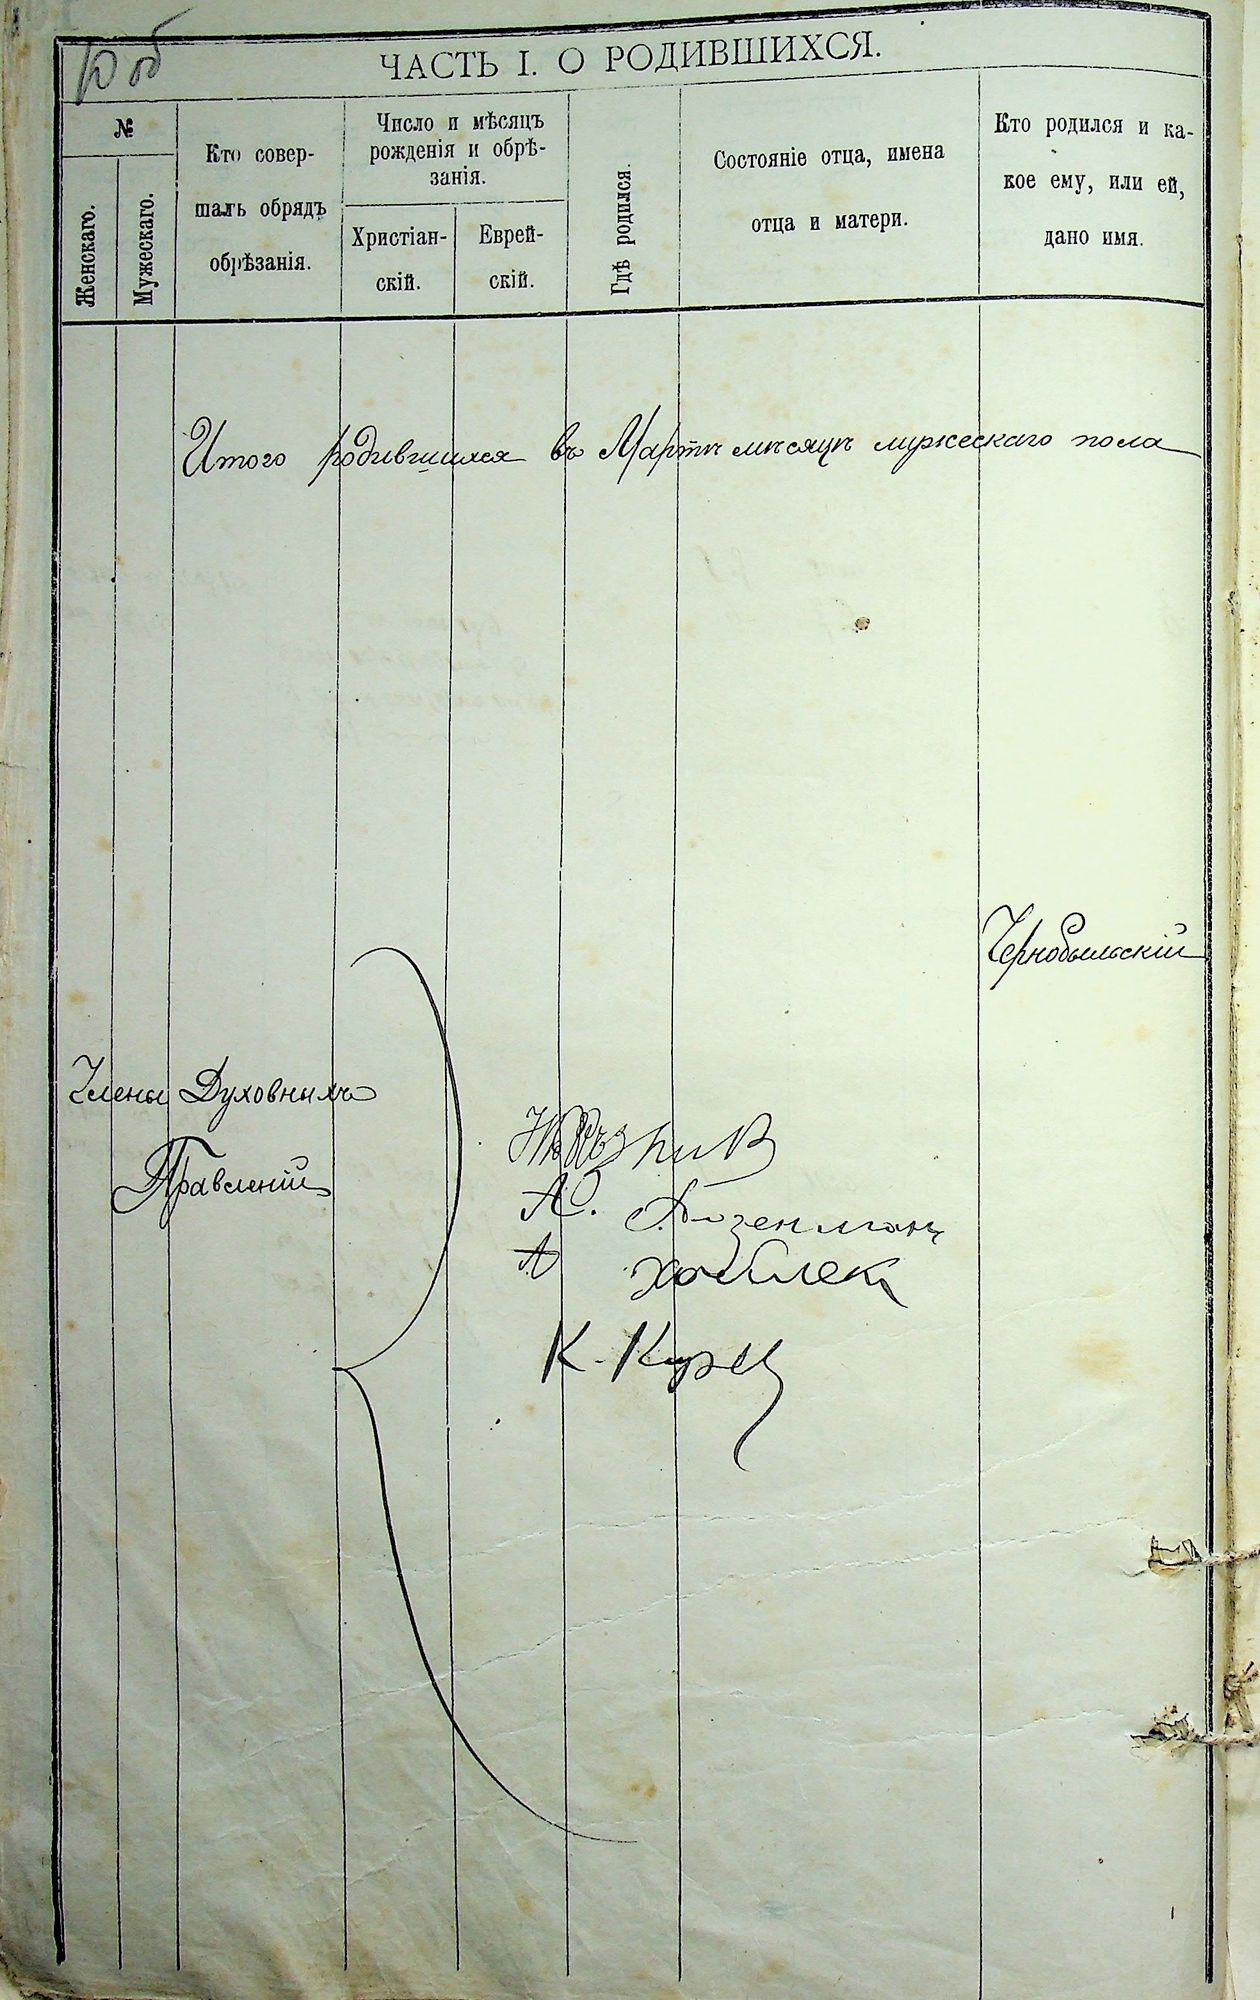 10 об
ЧАСТЬ I. О РОДИВШИХСЯ.
№
Женскаго.
Мужескаго.
Кто совер-
шалъ обрядъ
обрѣзанія.
Число и мѣсяцъ
рожденія и обрѣ-
занія.
Христіан-
скій.
Еврей-
скій.
Гдѣ родился.
Состояніе отца, имена
отца и матери.
Кто родился и ка-
кое ему, или ей,
дано имя.
Итого родившихся въ Мартѣ мѣсяцѣ мужескаго пола
Чернобыльскій
Члены Духовныхъ
Правленій
А.
А
К.